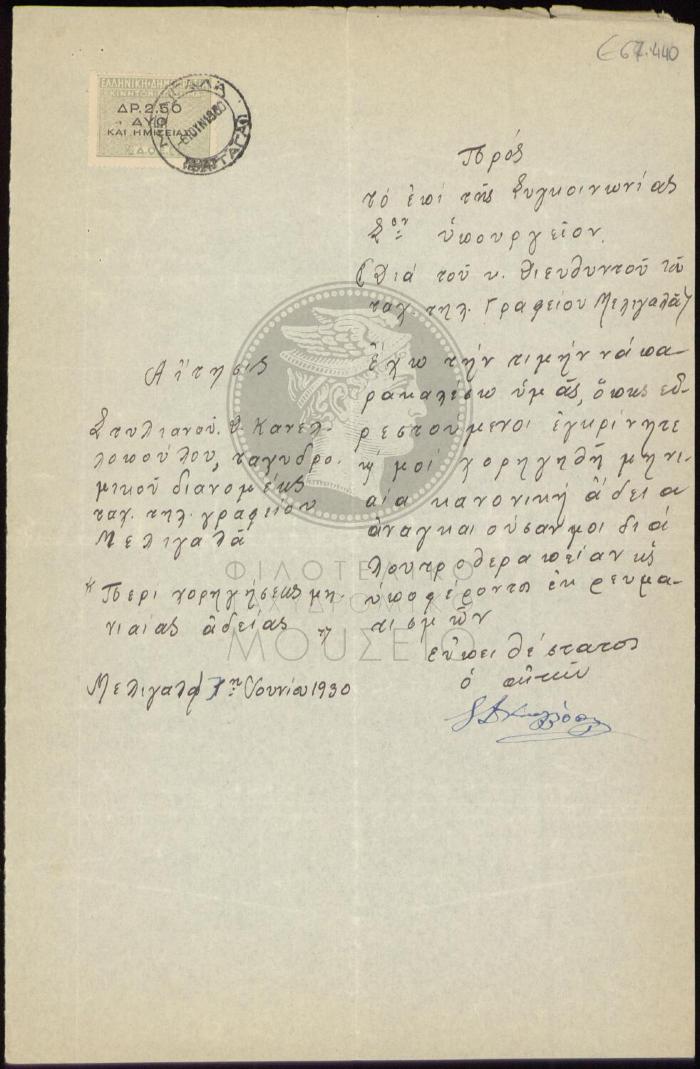 €67.440
ΕΛΛΗΝΙΚΗ ΔΗΜΟΚΡΑΤΙΑ
ΔΡ. 2.50
ΔΥΟ
ΚΑΙ ΗΜΙΣΕΙΑ
Πρός
τό ἐπί τῆς Συγκοινωνίας
Σον ὑπουργεῖον.
(Διά τοῦ κ. Διευθυντοῦ τοῦ
ταχ. τηλ. Γραφείου Μελιγαλᾶ)
Αἴτησις
Στυλιανοῦ. Δ. Κανελ-
λοπούλου, ταχυδρο-
μικοῦ διανομέως
ταχ. τηλ. γραφείου
Μελιγαλᾶ
"Περι χορηγήσεως μη-
νιαίας ἀδείας "
Μελιγαλᾷ 7η Ἰουνίου 1930
Ἔχω τήν τιμήν νά πα-
ρακαλέσω ὑμᾶς, ὅπως εὐ-
ρεστούμενοι ἐγκρίνητε
μοί χορηγηθῆ μηνι-
αία κανονική ἄδεια
ἀναγκαιοῦσαν μοι διά
λουτροθεραπείαν ὡς
ὑποφέροντα ἐκ ρευμα-
τισμῶν
εὐπειθέστατος
ὁ αἰτῶν
ΦΙΛΟΤΕΛΙΚΟ
ΤΑΧΥΔΡΟΜΙΚΟ
ΜΟΥΣΕΙΟ